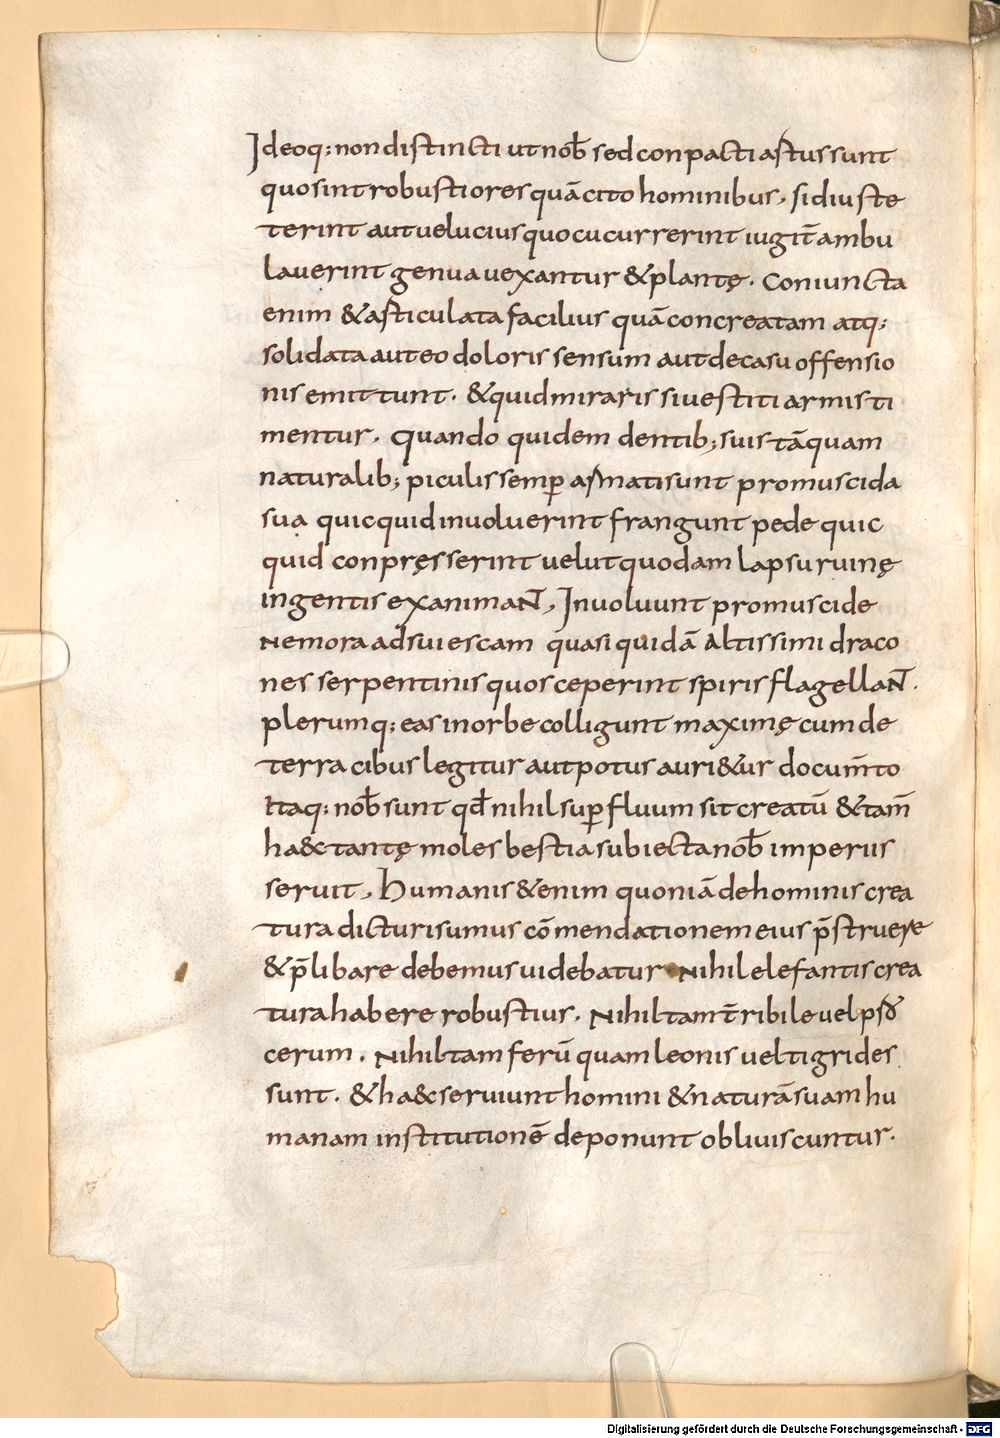 Ideoq; non distincti ut nob̄ sed conpacti artus sunt
quo sint robustiores quā cito hominibus, si diu ste
terint aut uelucius quo cucurrerint iugit̄ ambu
lauerint genua uexantur & plantę. Coniuncta
enim & articulata facilius quā concreatam atq;
solidata aut eo doloris sensum aut de casu offensio
nis emittunt. & quid miraris si uestiti armis ti
mentur. Quando quidem dentib; suis tāquam
naturalib; piculis semp̄ armati sunt promuscida
sua quicquid inuoluerint frangunt pede quic
quid conpręsserint uelut quodam lapsu ruinę
ingentis exanimaN̄, Inuoluunt promuscide
Nemora ad sui escam quasi quidā Altissimi draco
nes serpentinis quos ceperint spiris flagellaN̄.
plerumq; eas in orbe colligunt maximę cum de
terra cibus legitur aut potus auri&ur docum̄to
Itaq; nob̄ sunt qd̄ nihil sup̄fluum sit creatū & tam̄
ha&c tantę moles bestia subiecta nob̄ imperiis
seruit, Humanis & enim quoniā de hominis crea
tura dicturi sumus cōmendationem eius p̄struere
& p̄libare debemus uidebatur Nihil elefantis crea
tura habere robustius. Nihil tam t̄ribile uel psō
cerum. Nihil tam ferū quam leonis uel tigrides
sunt. & ha&c seruiunt homini & naturā suam hu
manam institutionē deponunt obliuiscuntur.
Digitalisierung gefördert durch die Deutsche Forschungsgemeinschaft - DFG